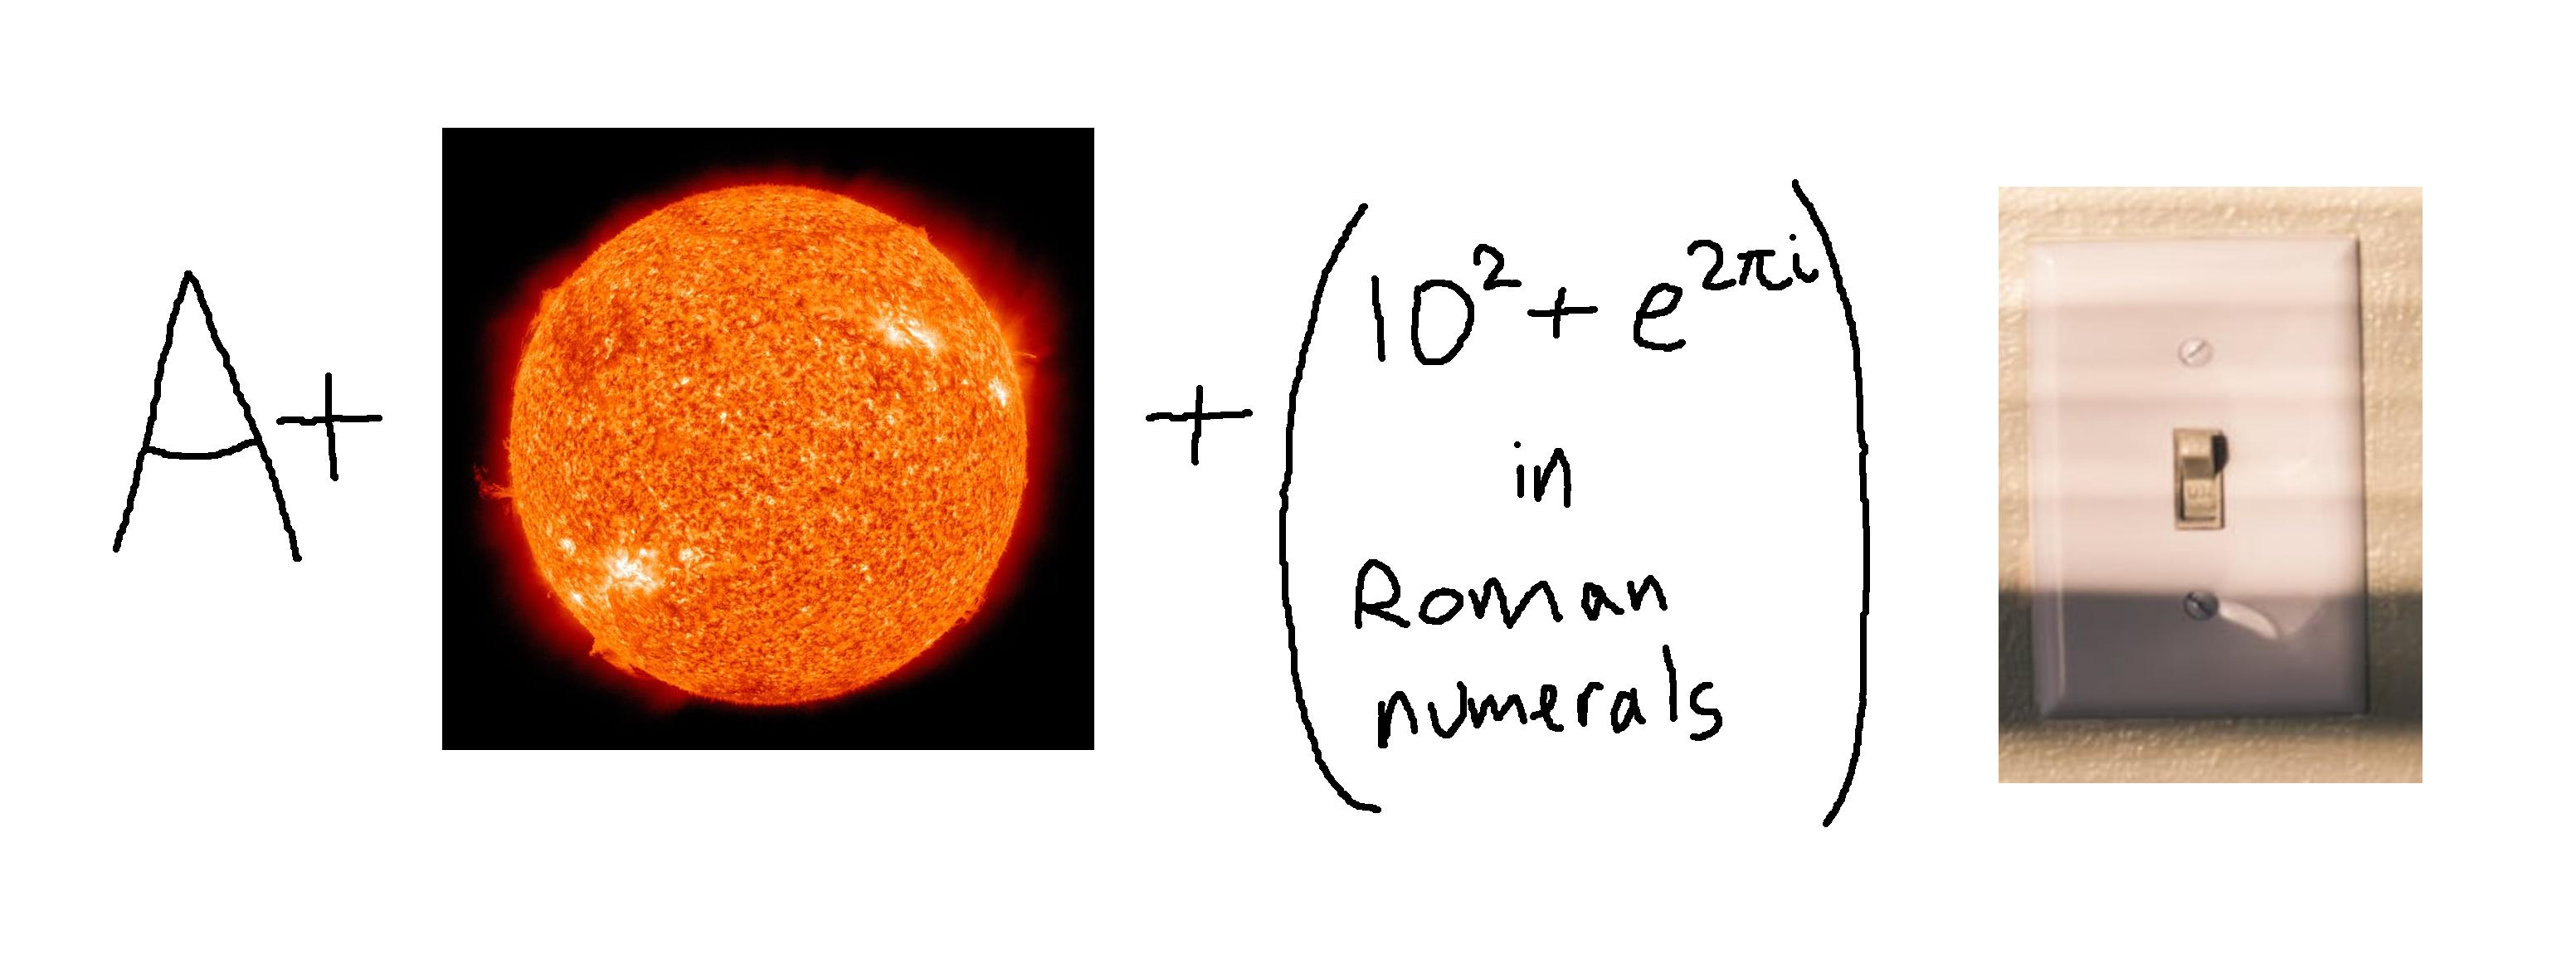 A + + (10² + e^{2πi})
in
Roman
numerals
ON